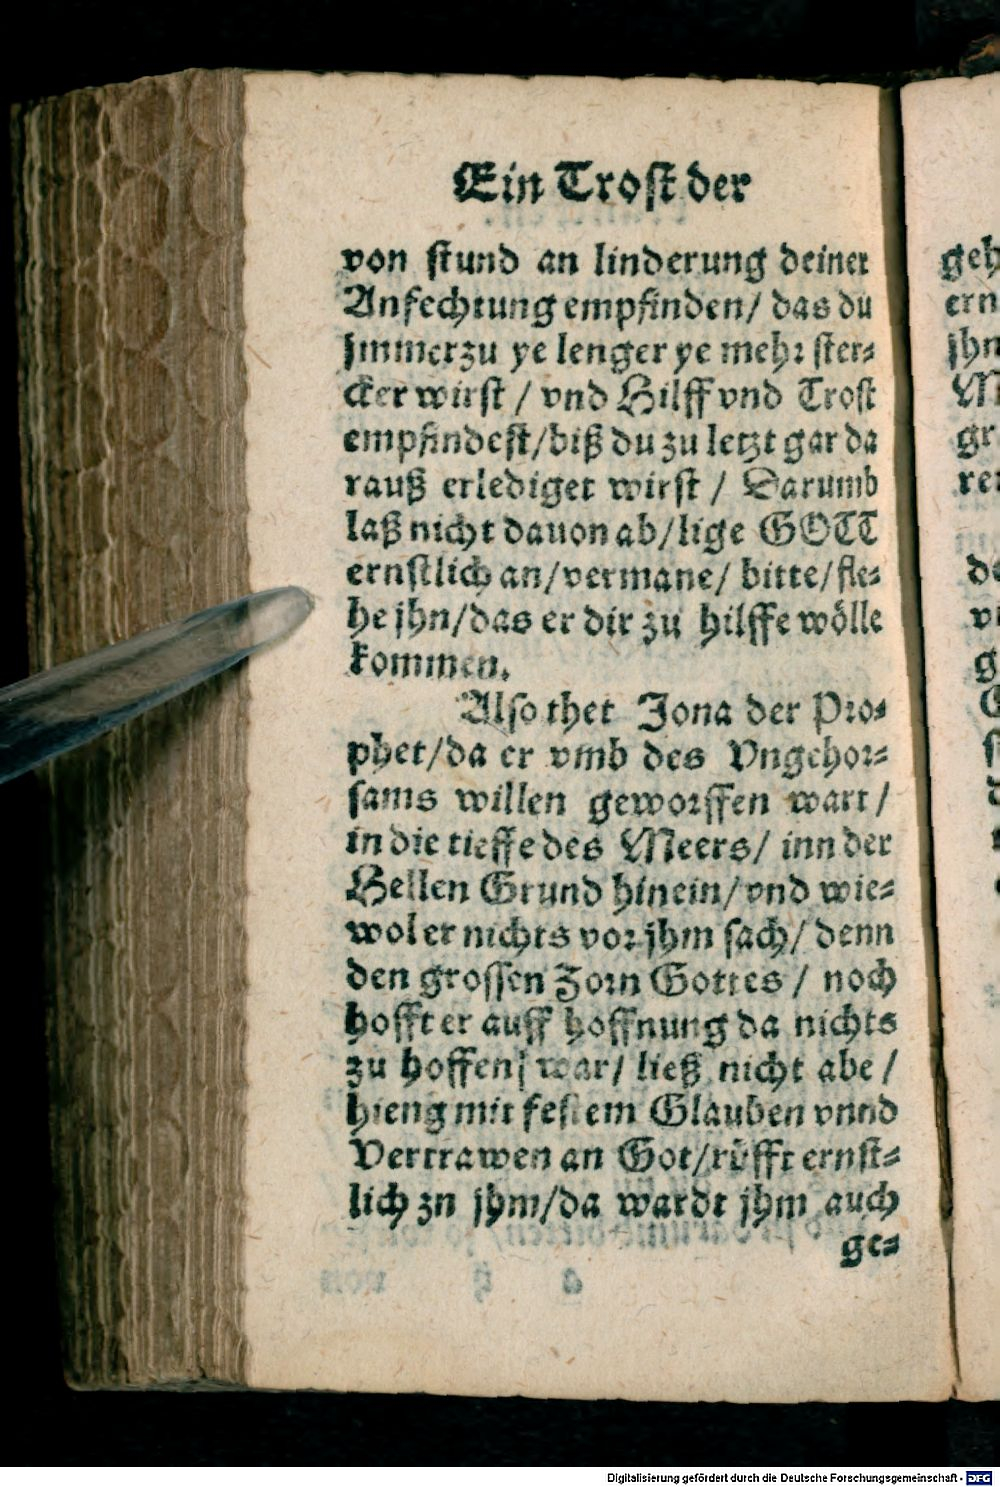 Ein Trost der
von stund an linderung deiner
Anfechtung empfinden/ das du
jmmerzu ye lenger ye mehr ster⸗
cker wirst / vnd Hilff vnd Trost
empfindest/biß du zu letzt gar da
rauß erlediget wirst / Darumb
laß nicht dauon ab/lige GOTT
ernstlich an/vermane/ bitte/fle⸗
he jhn/das er dir zu hilffe wölle
kommen.
Also thet Jona der Pro⸗
phet/da er vmb des Vngehor⸗
sams willen geworffen wart /
in die tieffe des Meers/ inn der
Hellen Grund hinein/vnd wie⸗
wol er nichts vor jhm sach/ denn
den grossen Zorn Gottes / noch
hofft er auff hoffnung da nichts
zu hoffen war/ ließ nicht abe /
hieng mit festem Glauben vnnd
Vertrawen an Got/rüfft ernst⸗
lich zn jhm/da wardt jhm auch
ge⸗
geh
ern
jhn
M
gr
de
g
Digitalisierung gefördert durch die Deutsche Forschungsgemeinschaft - DFG